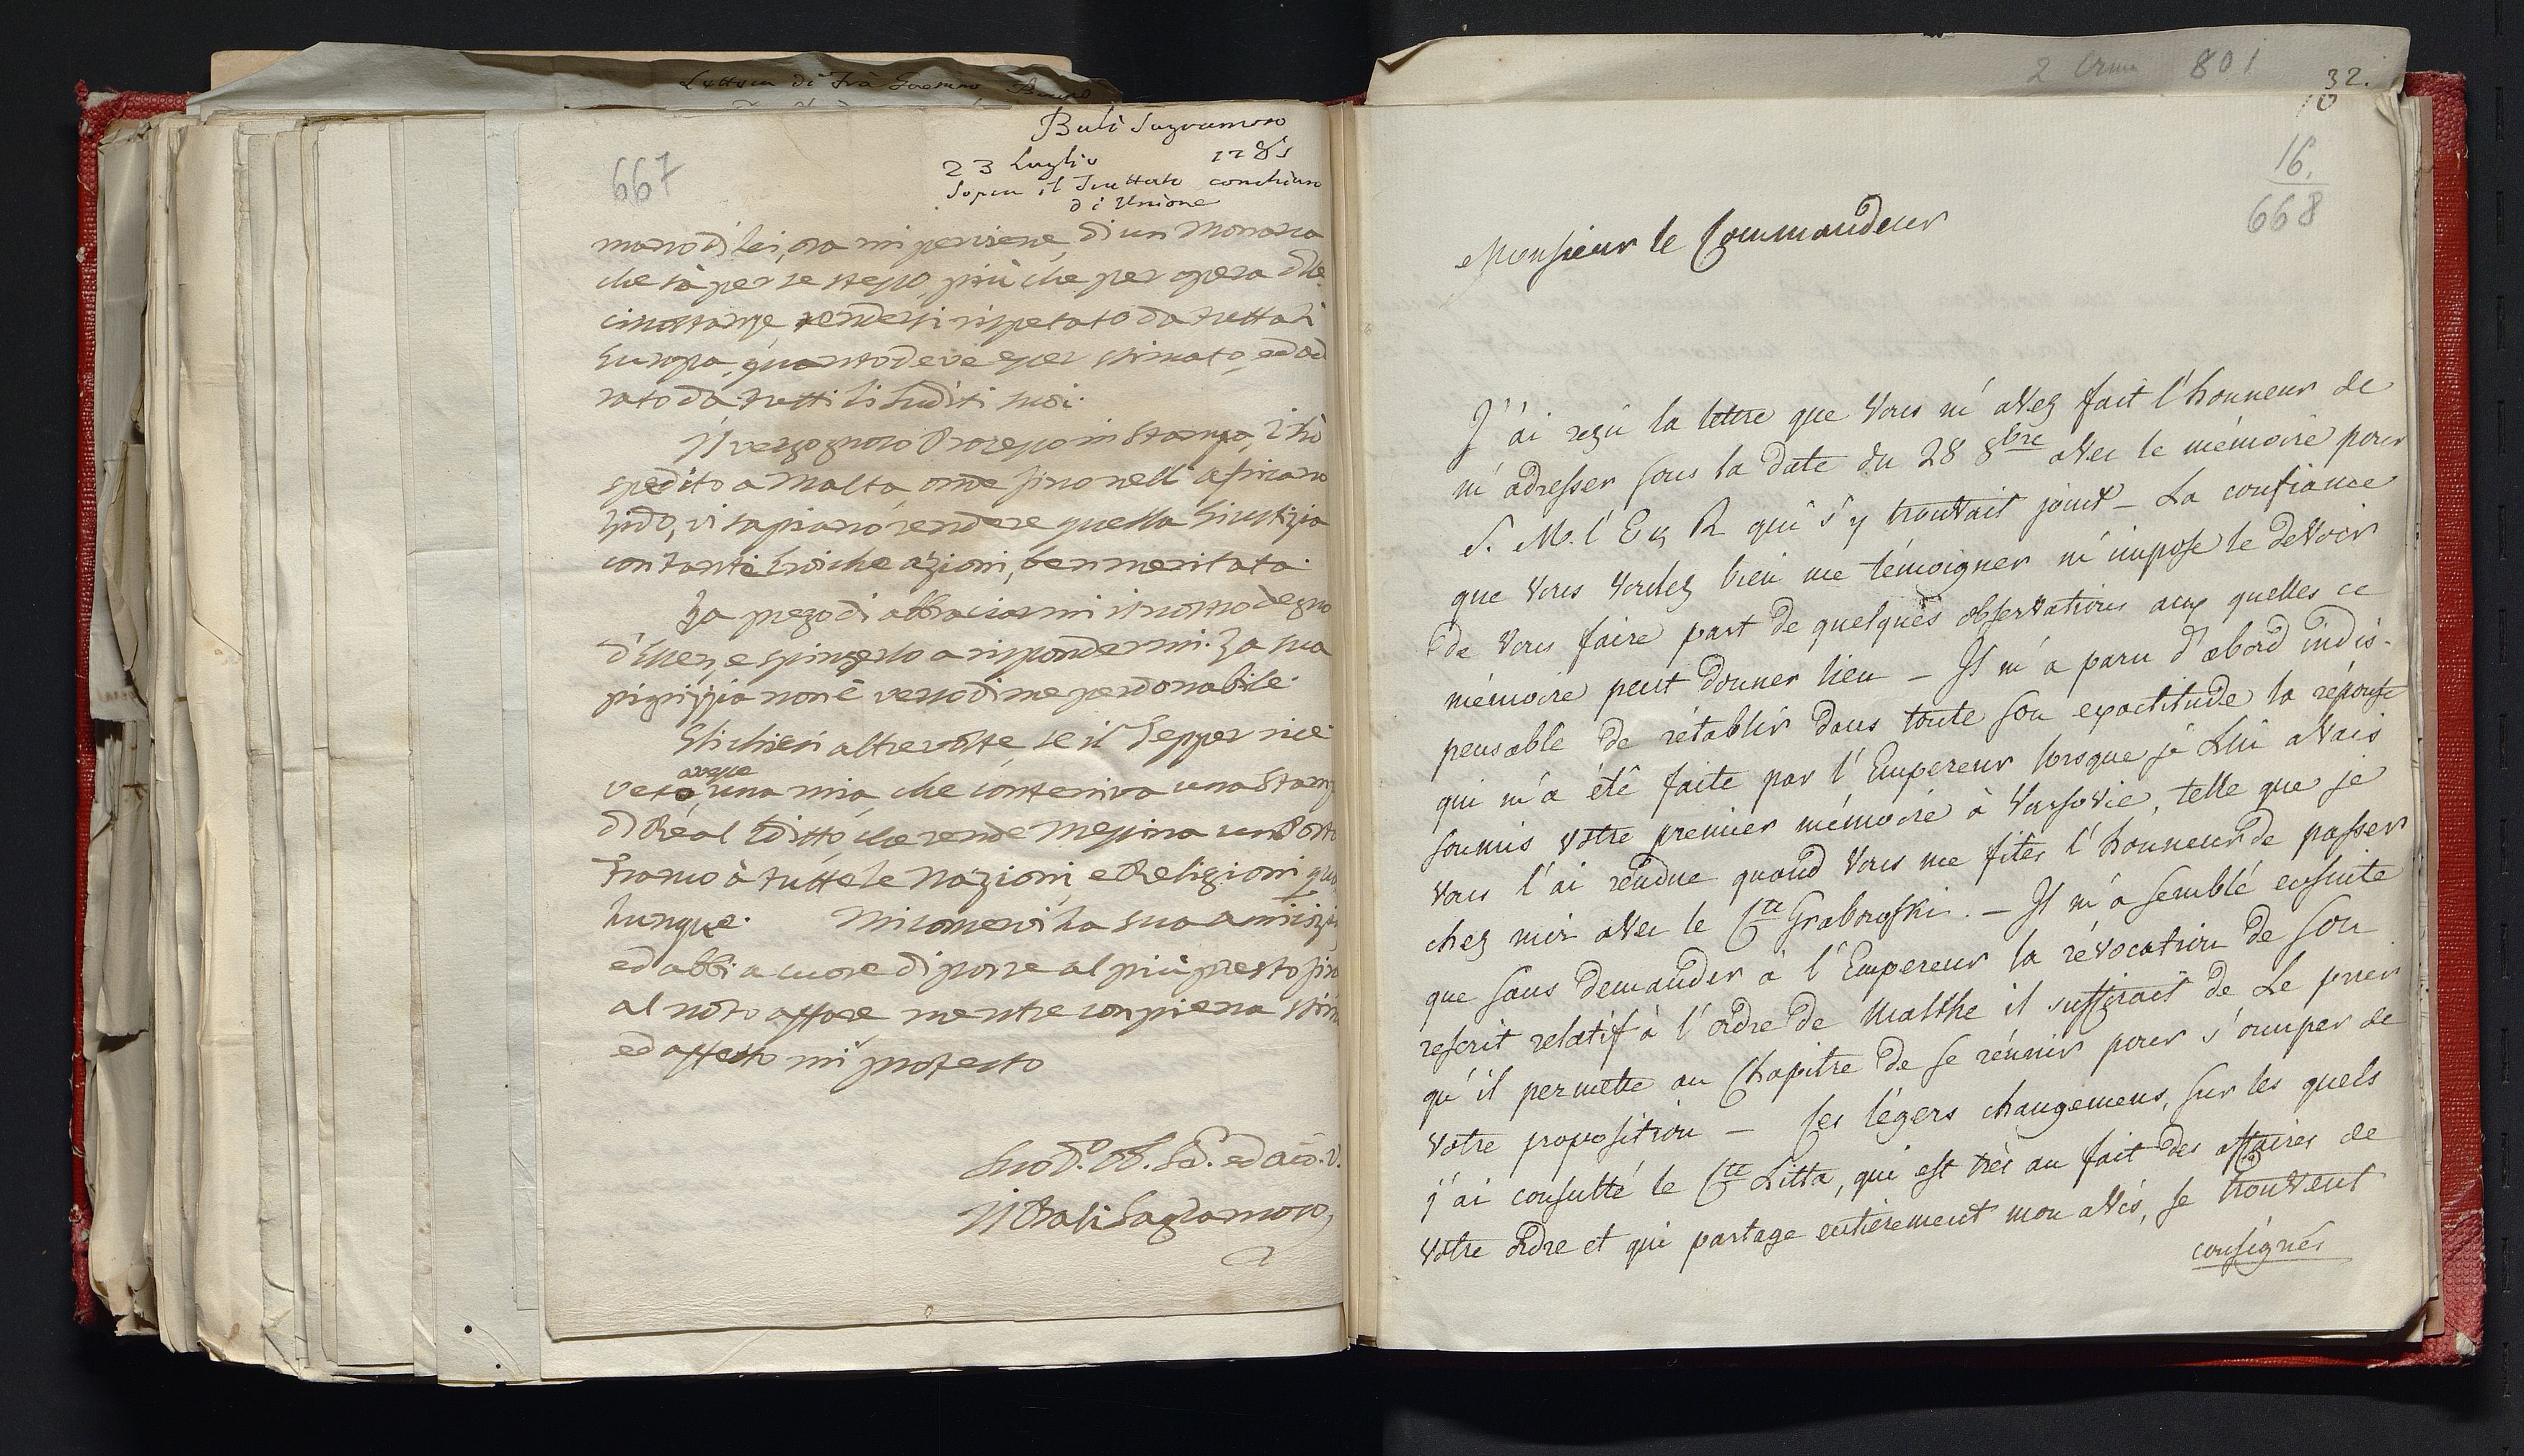 Lettera di Frà
Bali Sagramoso
667
23 Luglio 1781
Sopra il Trattato conchiuso
di Unione
mano di Lei, ora mi perviene, di un Monarca
che sà per se stesso, più che per opera delle
circostanze rendersi rispetato da tutta l'
Europa, quanto deve esser stimato, ed ado
rato da tutti li suditi suoi.
Il vergognoso Processo in Stampa, l'hò
spedito a Malta onde sino nell' africano
lido, vi sapiano rendere quella Giustizia
con tante eroiche azioni, ben meritata.
La prego di abbraciarmi il nostro degno
d'Ellen, e spingerlo a rispondermi. La sua
pigrizzia non è verso di me perdonabile.
Gli chiesi altre volte, se il Tepper rice
anche
veto, una mia, che conteniva una Stamp
di Real Editto, che rende Messina un Porto
Franco à tutte le Nazioni, e Religioni qua
lunque. Mi conservi la sua amicizia
ed abbi a cuore di porre al più presto fin
al noto affare mentre con piena stim
ed affetto mi protesto
Il Bali Sagramoso
2 801
32.
10
16.
668
Monsieur le Commandeur
J'ai reçu la lettre que Vous m'avez fait l'honneur de
m'adresser sous la date du 28 8bre avec le mémoire pour
S. M. l'E & R qui s'y trouvait joint - La confiance
que Vous voulez bien me témoigner m'impose le devoir
de Vous faire part de quelques observations aux quelles ce
mémoire peut donner lieu - Il m'a paru d'abord indis-
pensable de rétablir dans toute son exactitude la réponse
qui m'a été faite par l'Empereur lorsque je Lui avais
soumis Votre premier mémoire à Varsovie, telle que je
Vous l'ai rendue quand Vous me fites l'honneur de passer
chez moi avec le Cte Grabowski. - Il m'a semblé ensuite
que sans demander à l'Empereur la révocation de son
rescrit relatif à l'ordre de Malthe il suffirait de Le prier
qu'il permette au Chapitre de se réunir pour s'occuper de
Votre proposition - Ces légers changemens, sur les quels
j'ai consulté le Cte Litta, qui est très au fait des affaires de
Votre ordre et qui partage entierement mon avis, se trouvent
consignés